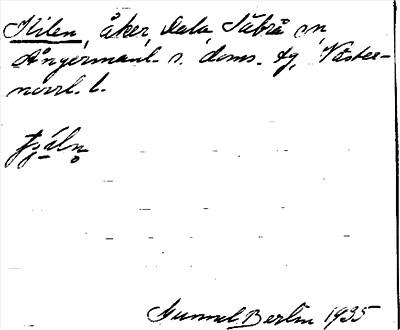 Kilen, åker, Dala Säbrå sn
Ångermanl. s. doms. tg, Väster-
norrl. l.
Gunnel Berlin 1935